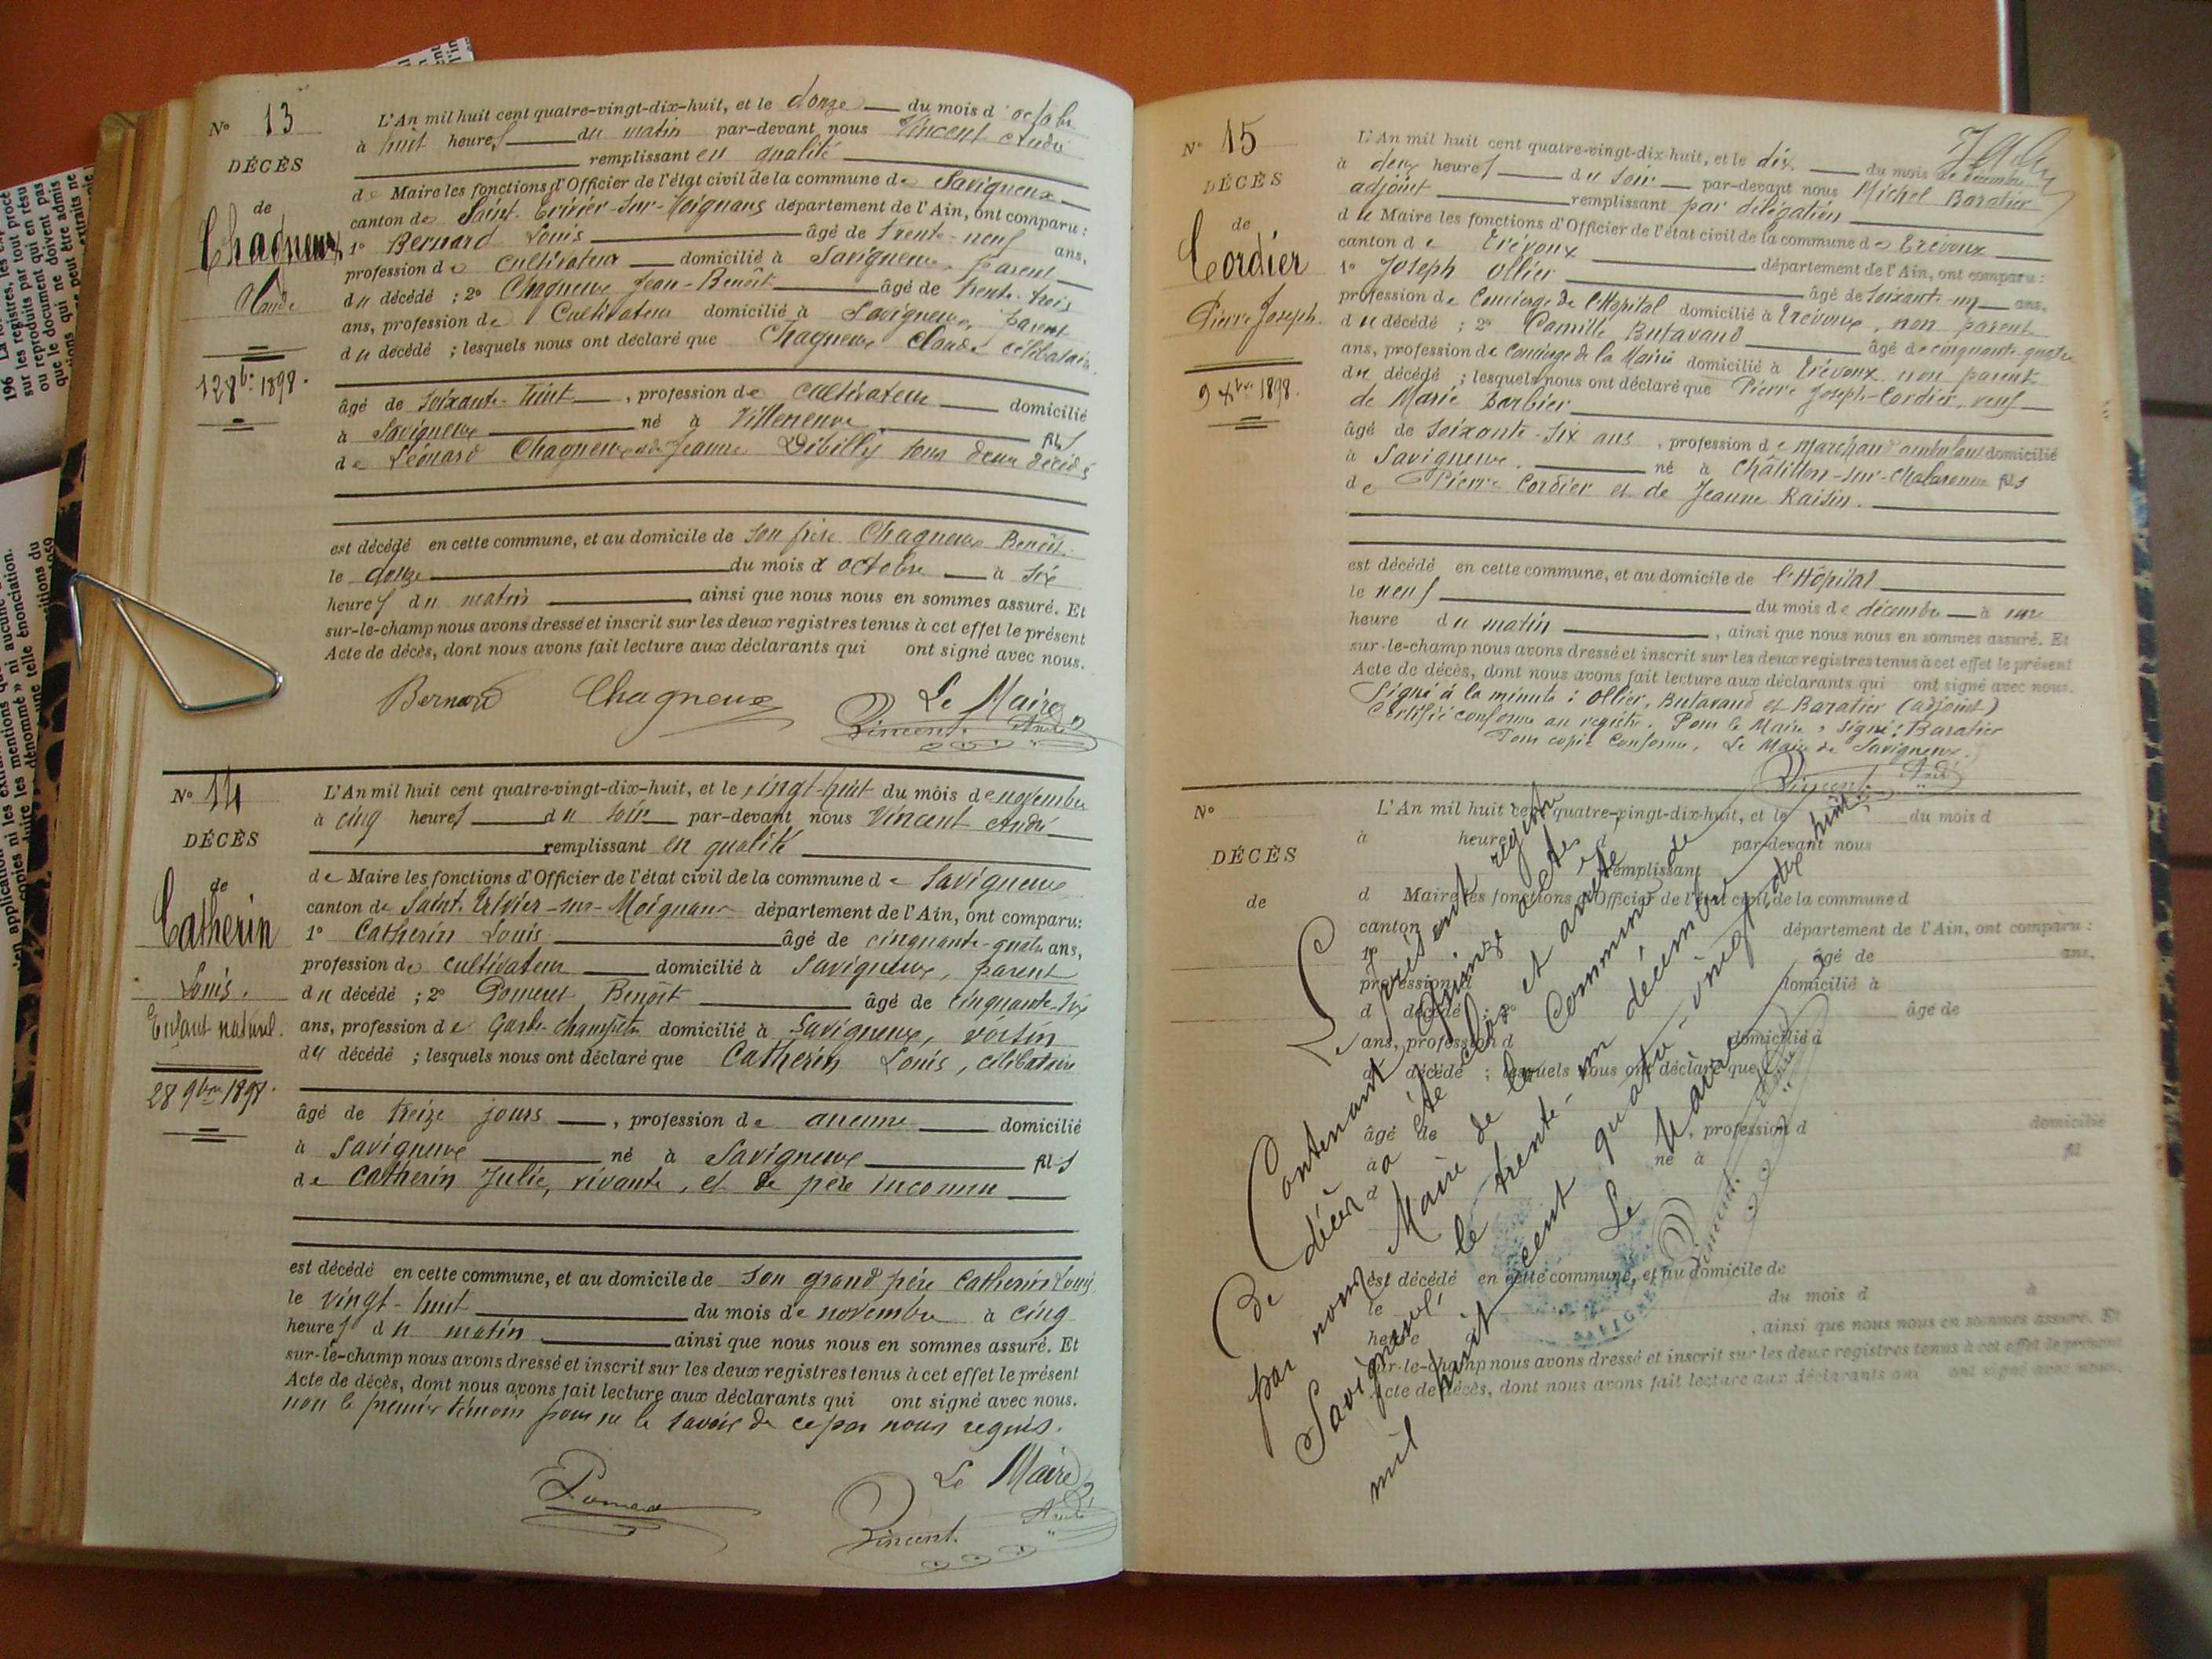 N° 13
DÉCÈS
de
Chagneux
Claude
12 8bre 1898.
L'An mil huit cent quatre-vingt-dix-huit, et le douze du mois d'octobre
à huit heures du matin par-devant nous Vincent André
remplissant en qualité
de Maire les fonctions d'Officier de l'état civil de la commune de Savigneux
canton de Saint-Trivier-sur-Moignans département de l'Ain, ont comparu :
1° Bernard Louis âgé de trente-neuf ans,
profession de cultivateur domicilié à Savigneux, parent
du décédé ; 2° Chagneux Jean-Benoît âgé de trente-trois
ans, profession de Cultivateur domicilié à Savigneux, parent
du décédé ; lesquels nous ont déclaré que Chagneux Claude célibataire
âgé de soixante-huit , profession de cultivateur domicilié
à Savigneux né à Villeneuve fils
de Léonard Chagneux et de Jeanne Débilly tous deux décédés
est décédé en cette commune, et au domicile de son frère Chagneux Benoît
le douze du mois d octobre à six
heures du matin ainsi que nous nous en sommes assuré. Et
sur-le-champ nous avons dressé et inscrit sur les deux registres tenus à cet effet le présent
Acte de décès, dont nous avons fait lecture aux déclarants qui ont signé avec nous.
Bernard Chagneux Le Maire
Vincent André
N° 14
DÉCÈS
de
Catherin
Louis.
Enfant naturel.
28 9bre 1898.
L'An mil huit cent quatre-vingt-dix-huit, et le vingt-huit du mois de novembre
à cinq heures du soir par-devant nous Vincent André
remplissant en qualité
de Maire les fonctions d'Officier de l'état civil de la commune de Savigneux
canton de Saint-Trivier-sur-Moignans département de l'Ain, ont comparu :
1° Catherin Louis âgé de cinquante-quatre ans,
profession de cultivateur domicilié à Savigneux, parent
du décédé ; 2° Pomeret Benoît âgé de cinquante-six
ans, profession de Garde-champêtre domicilié à Savigneux, voisin
du décédé ; lesquels nous ont déclaré que Catherin Louis, célibataire
âgé de treize jours , profession de aucune domicilié
à Savigneux né à Savigneux fils
de Catherin Julie, vivante, et de père inconnu
est décédé en cette commune, et au domicile de son grand père Catherin Louis
le vingt-huit du mois de novembre à cinq
heures du matin ainsi que nous nous en sommes assuré. Et
sur-le-champ nous avons dressé et inscrit sur les deux registres tenus à cet effet le présent
Acte de décès, dont nous avons fait lecture aux déclarants qui ont signé avec nous.
non le premier témoin pour ne le savoir de ce par nous requis.
Le Maire
Vincent André
N° 15
DÉCÈS
de
Cordier
Pierre Joseph.
9 Xbre 1898.
L'An mil huit cent quatre-vingt-dix-huit, et le dix du mois de décembre
à deux heures du soir par-devant nous Michel Baratier
adjoint remplissant par délégation
du Maire les fonctions d'Officier de l'état civil de la commune de Trévoux
canton de Trévoux département de l'Ain, ont comparu :
1° Joseph Ollier âgé de soixante-un ans,
profession de Concierge de l'Hôpital domicilié à Trévoux, non parent
du décédé ; 2° Camille Butavand âgé de cinquante-quatre
ans, profession de Concierge de la Mairie domicilié à Trévoux non parent
du décédé ; lesquels nous ont déclaré que Pierre Joseph-Cordier, veuf
de Marie Barbier
âgé de soixante-six ans , profession de marchand ambulant domicilié
à Savigneux. né à Châtillon-sur-Chalaronne fils
de Pierre Cordier et de Jeanne Raisin.
est décédé en cette commune, et au domicile de l'Hôpital
le neuf du mois de décembre à une
heure du matin , ainsi que nous nous en sommes assuré. Et
sur-le-champ nous avons dressé et inscrit sur les deux registres tenus à cet effet le présent
Acte de décès, dont nous avons fait lecture aux déclarants qui ont signé avec nous.
Signé à la minute : Ollier, Butavand et Baratier (adjoint)
Certifié conforme au registre. Pour le Maire, signé : Baratier
Pour copie conforme, Le Maire de Savigneux.
Vincent André
N°
DÉCÈS
de
L'An mil huit cent quatre-vingt-dix-huit, et le du mois d
à heure par-devant nous
remplissant
d Maire les fonctions d'Officier de l'état civil de la commune d
canton département de l'Ain, ont comparu :
1° âgé de ans,
profession d domicilié à
d décédé ; 2° âgé de
ans, profession d domicilié à
d décédé ; lesquels nous ont déclaré que
âgé de , profession d domicilié
à né à fil
d
est décédé en cette commune, et au domicile de
le du mois d à
heure , ainsi que nous nous en sommes assuré. Et
sur-le-champ nous avons dressé et inscrit sur les deux registres tenus à cet effet le présent
Acte de décès, dont nous avons fait lecture aux déclarants qui ont signé avec nous.
Le présent registre
Contenant Quinze actes
de décès a été clos et arrêté
par nous Maire de la Commune de
Savigneux, le trente-un décembre
mil huit cent quatre-vingt-dix huit.
Le Maire
Vincent André